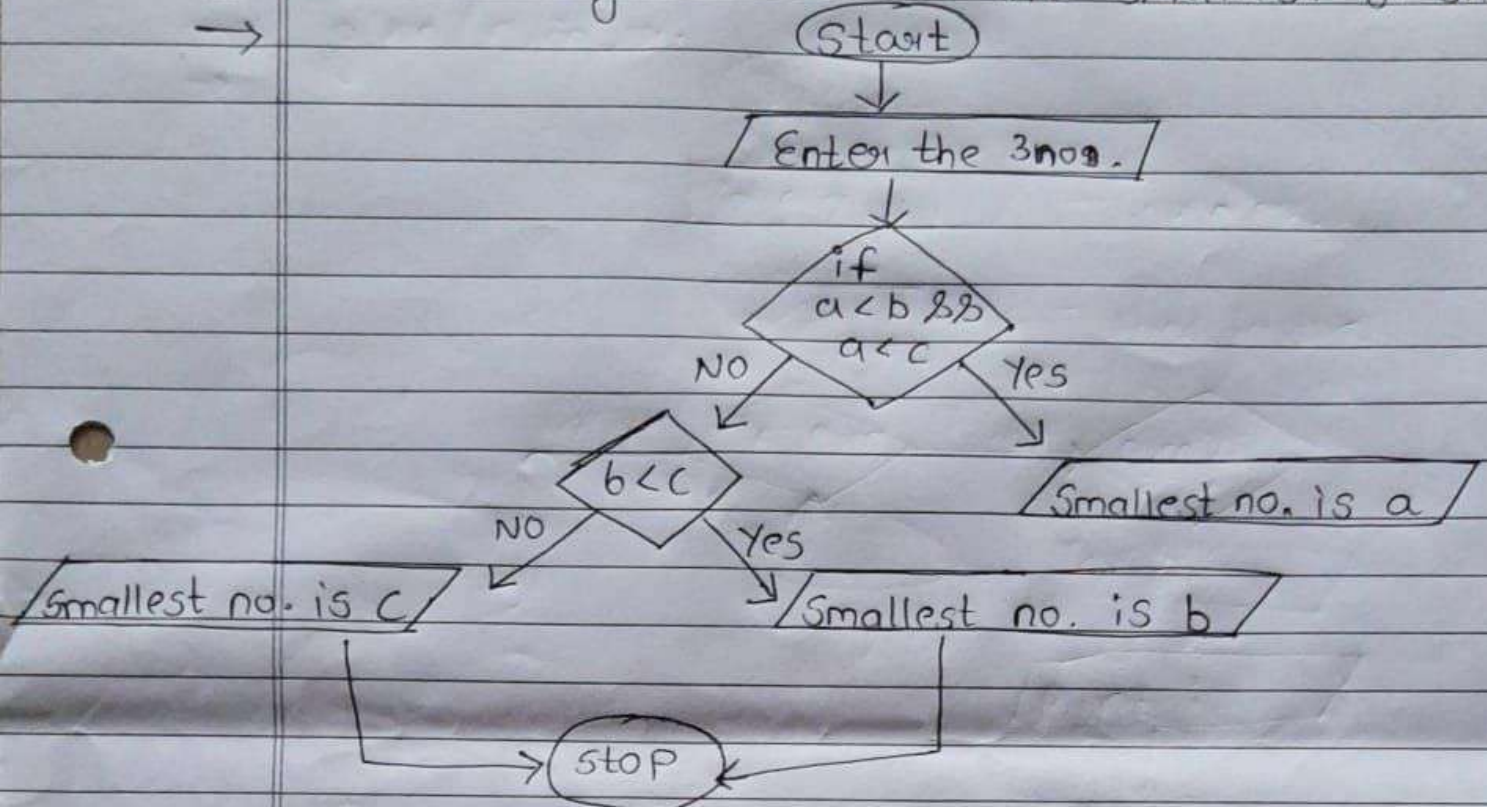 Start
Enter the 3nos.
if
a < b &&
a < c
NO
Yes
b < c
Smallest no. is a
NO
Yes
Smallest no. is c
Smallest no. is b
Stop